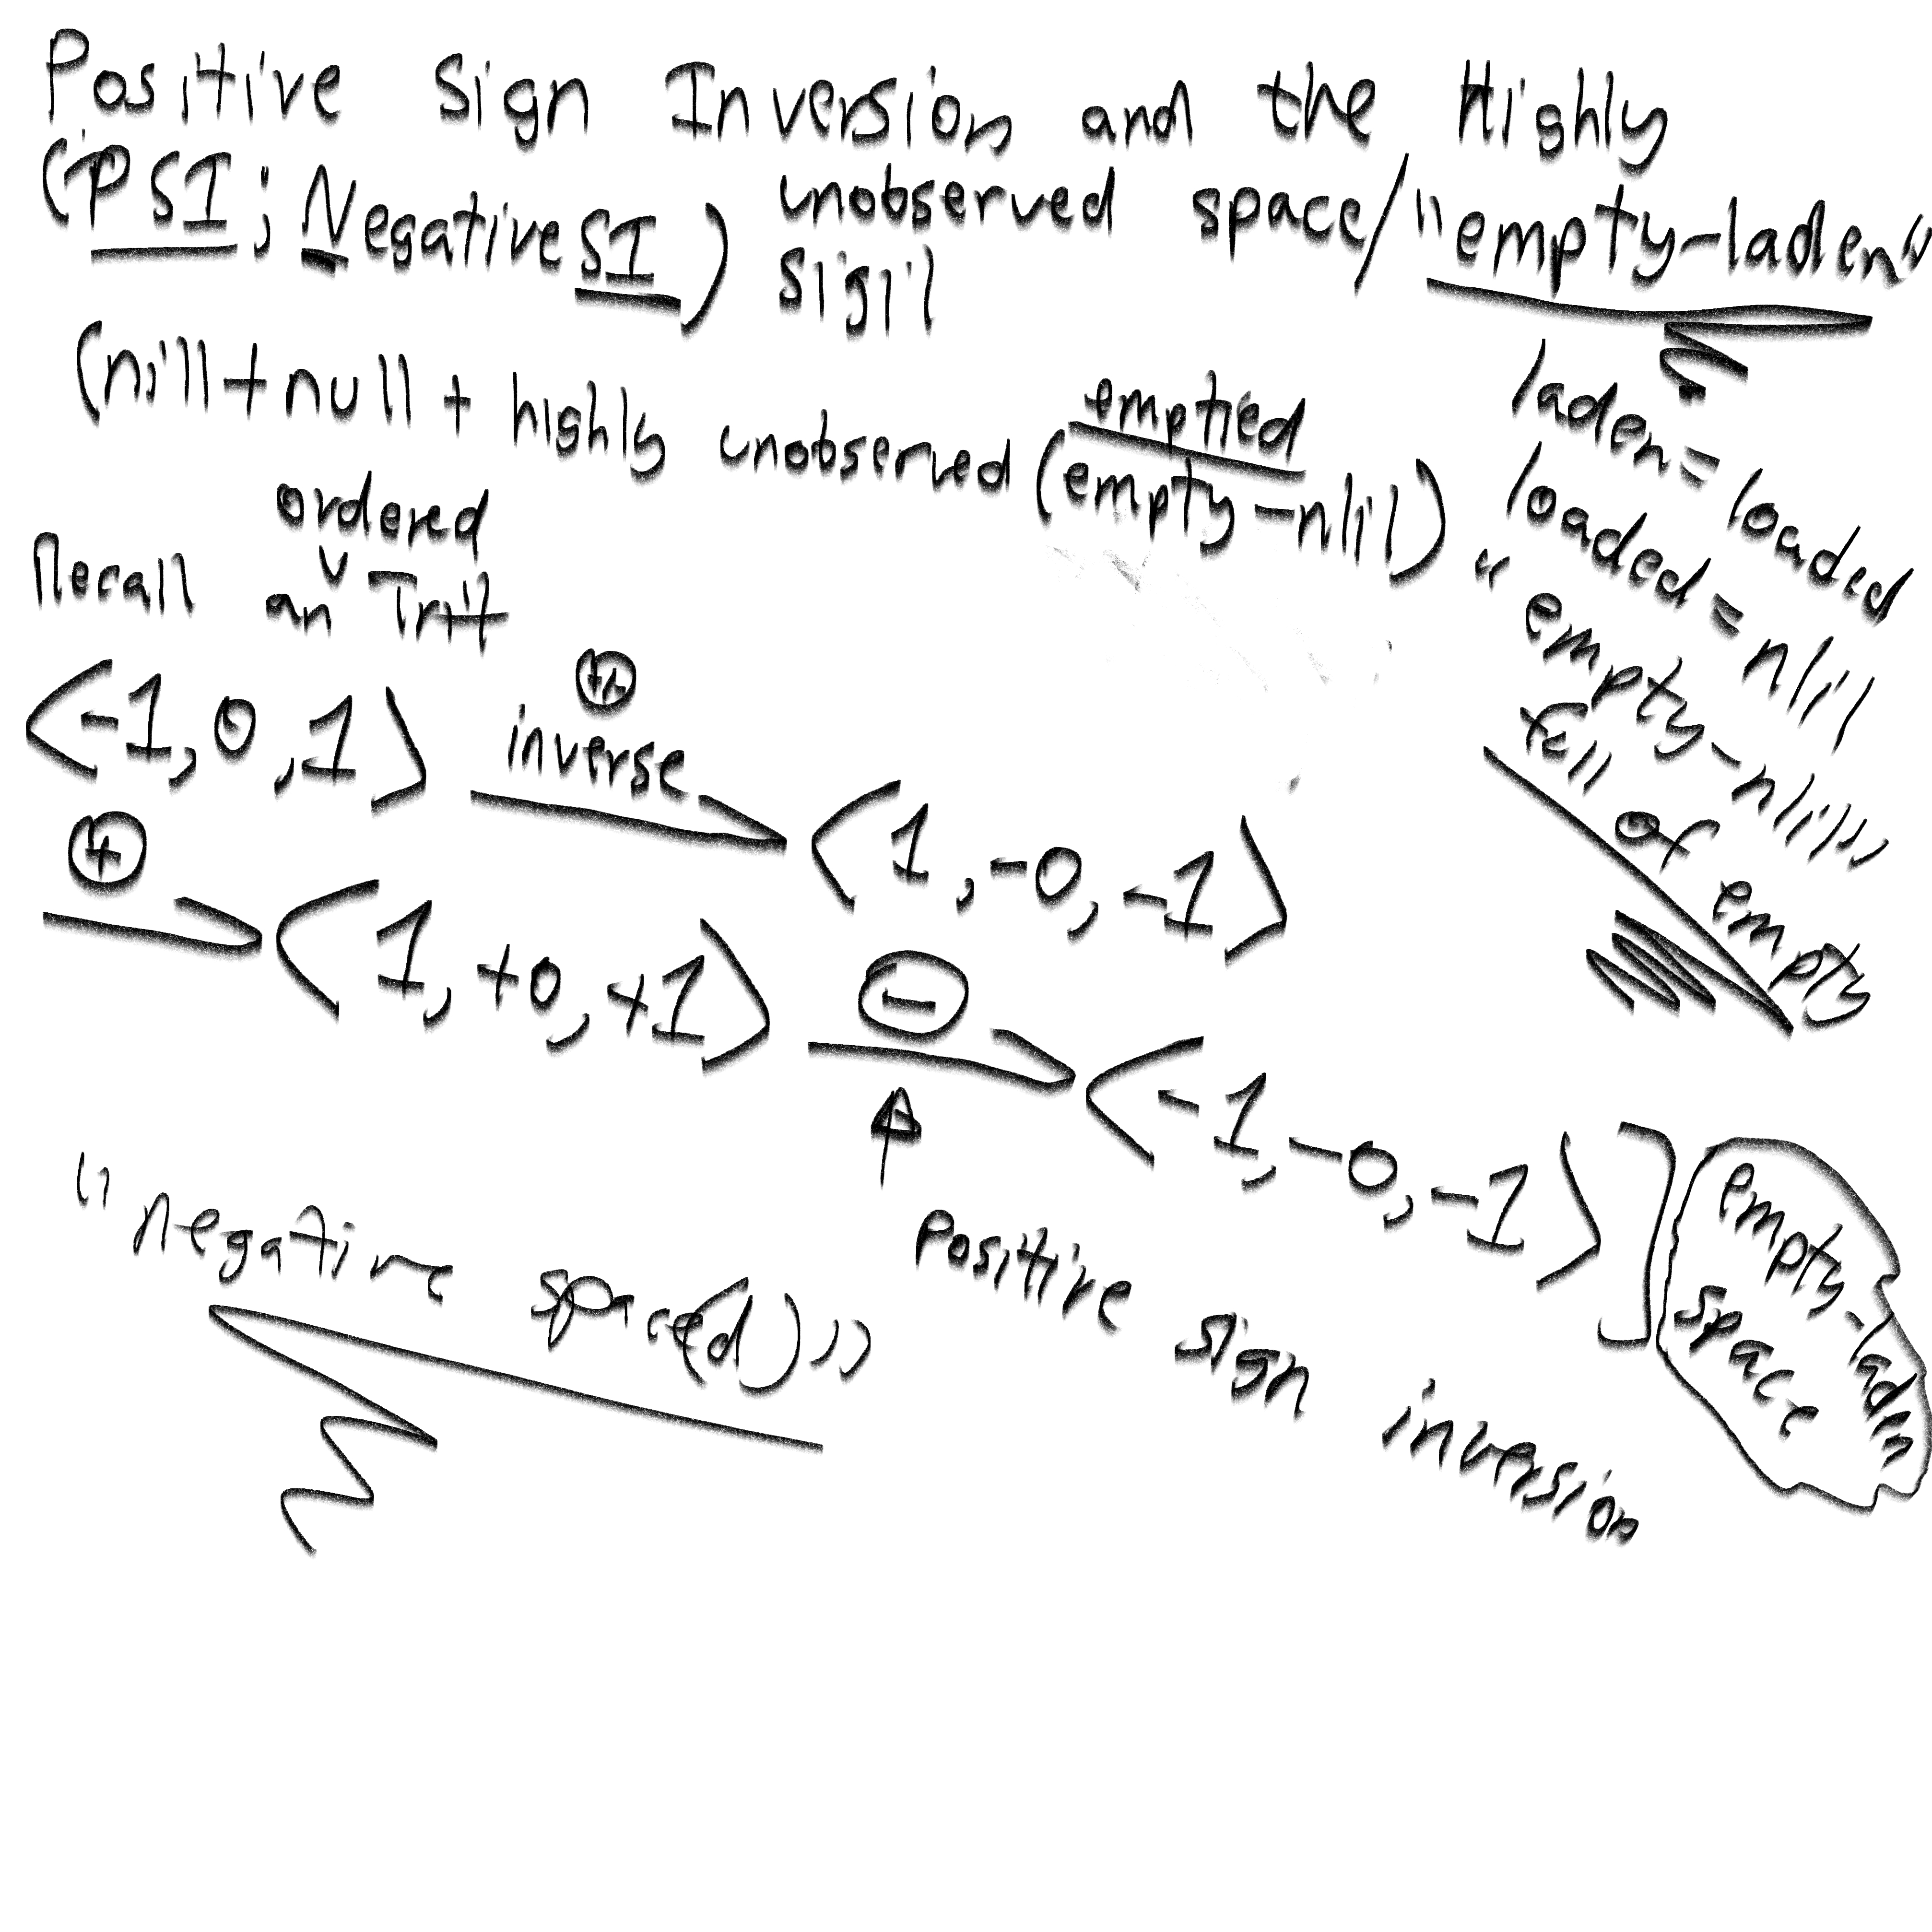 Positive Sign Inversion and the Highly
(PSI; NegativeSI) unobserved space/"empty-laden"
sigil
(nill+null+highly unobserved (empty-nlil)
emptied
laden=loaded
loaded=nlil
"empty-nlil"
full of empty
ordered
Recall an Trit
<-1,0,1> inverse <1,-0,-1>
⊕ <1,+0,+1> ⊖ <-1,-0,-1>] empty-laden
space
"negative space(d)"
Positive sign inversion